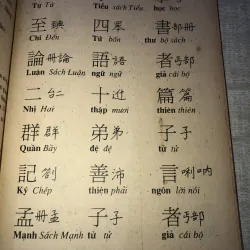 Tứ Tử Tiểu sách Tiểu học học
至 四 書 部冊
Chí Đến Tứ bốn thư bộ sách
論 冊論 語 語 者 丐部
Luận Sách Luận ngữ ngữ giả cái bộ
二 𠄩 十 𨑮 篇 篇
Nhị Hai thập mươi thiên thiên
群 群 弟 弟 子 子
Quần Bầy đệ đệ tử tử
記 劄 善 沛 言 唎呐
Ký Chép thiện phải ngôn lời nói
孟 冊孟 子 子 者 丐部
Mạnh Sách Mạnh tử tử giả cái bộ